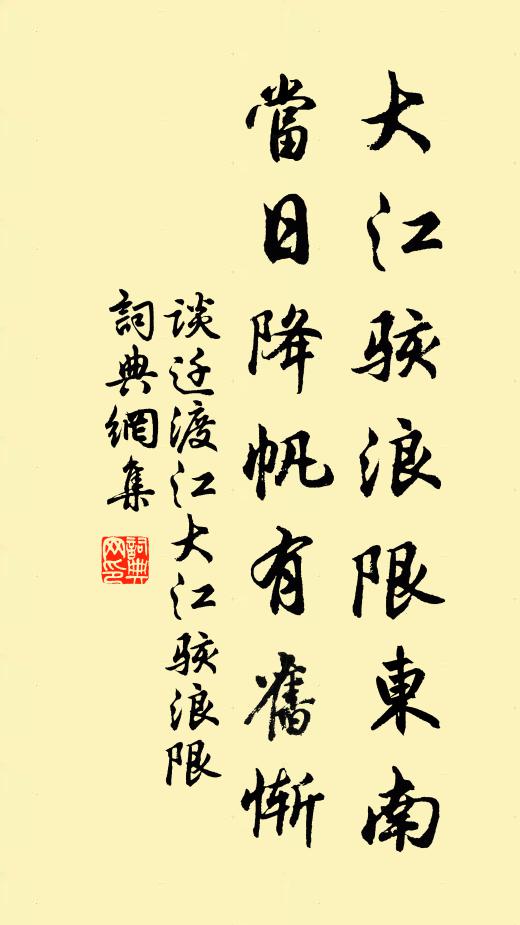 大江駭浪限東南
當日降帆有舊慚
談迁渡江大江駭浪限
詞典網集
詞典网印